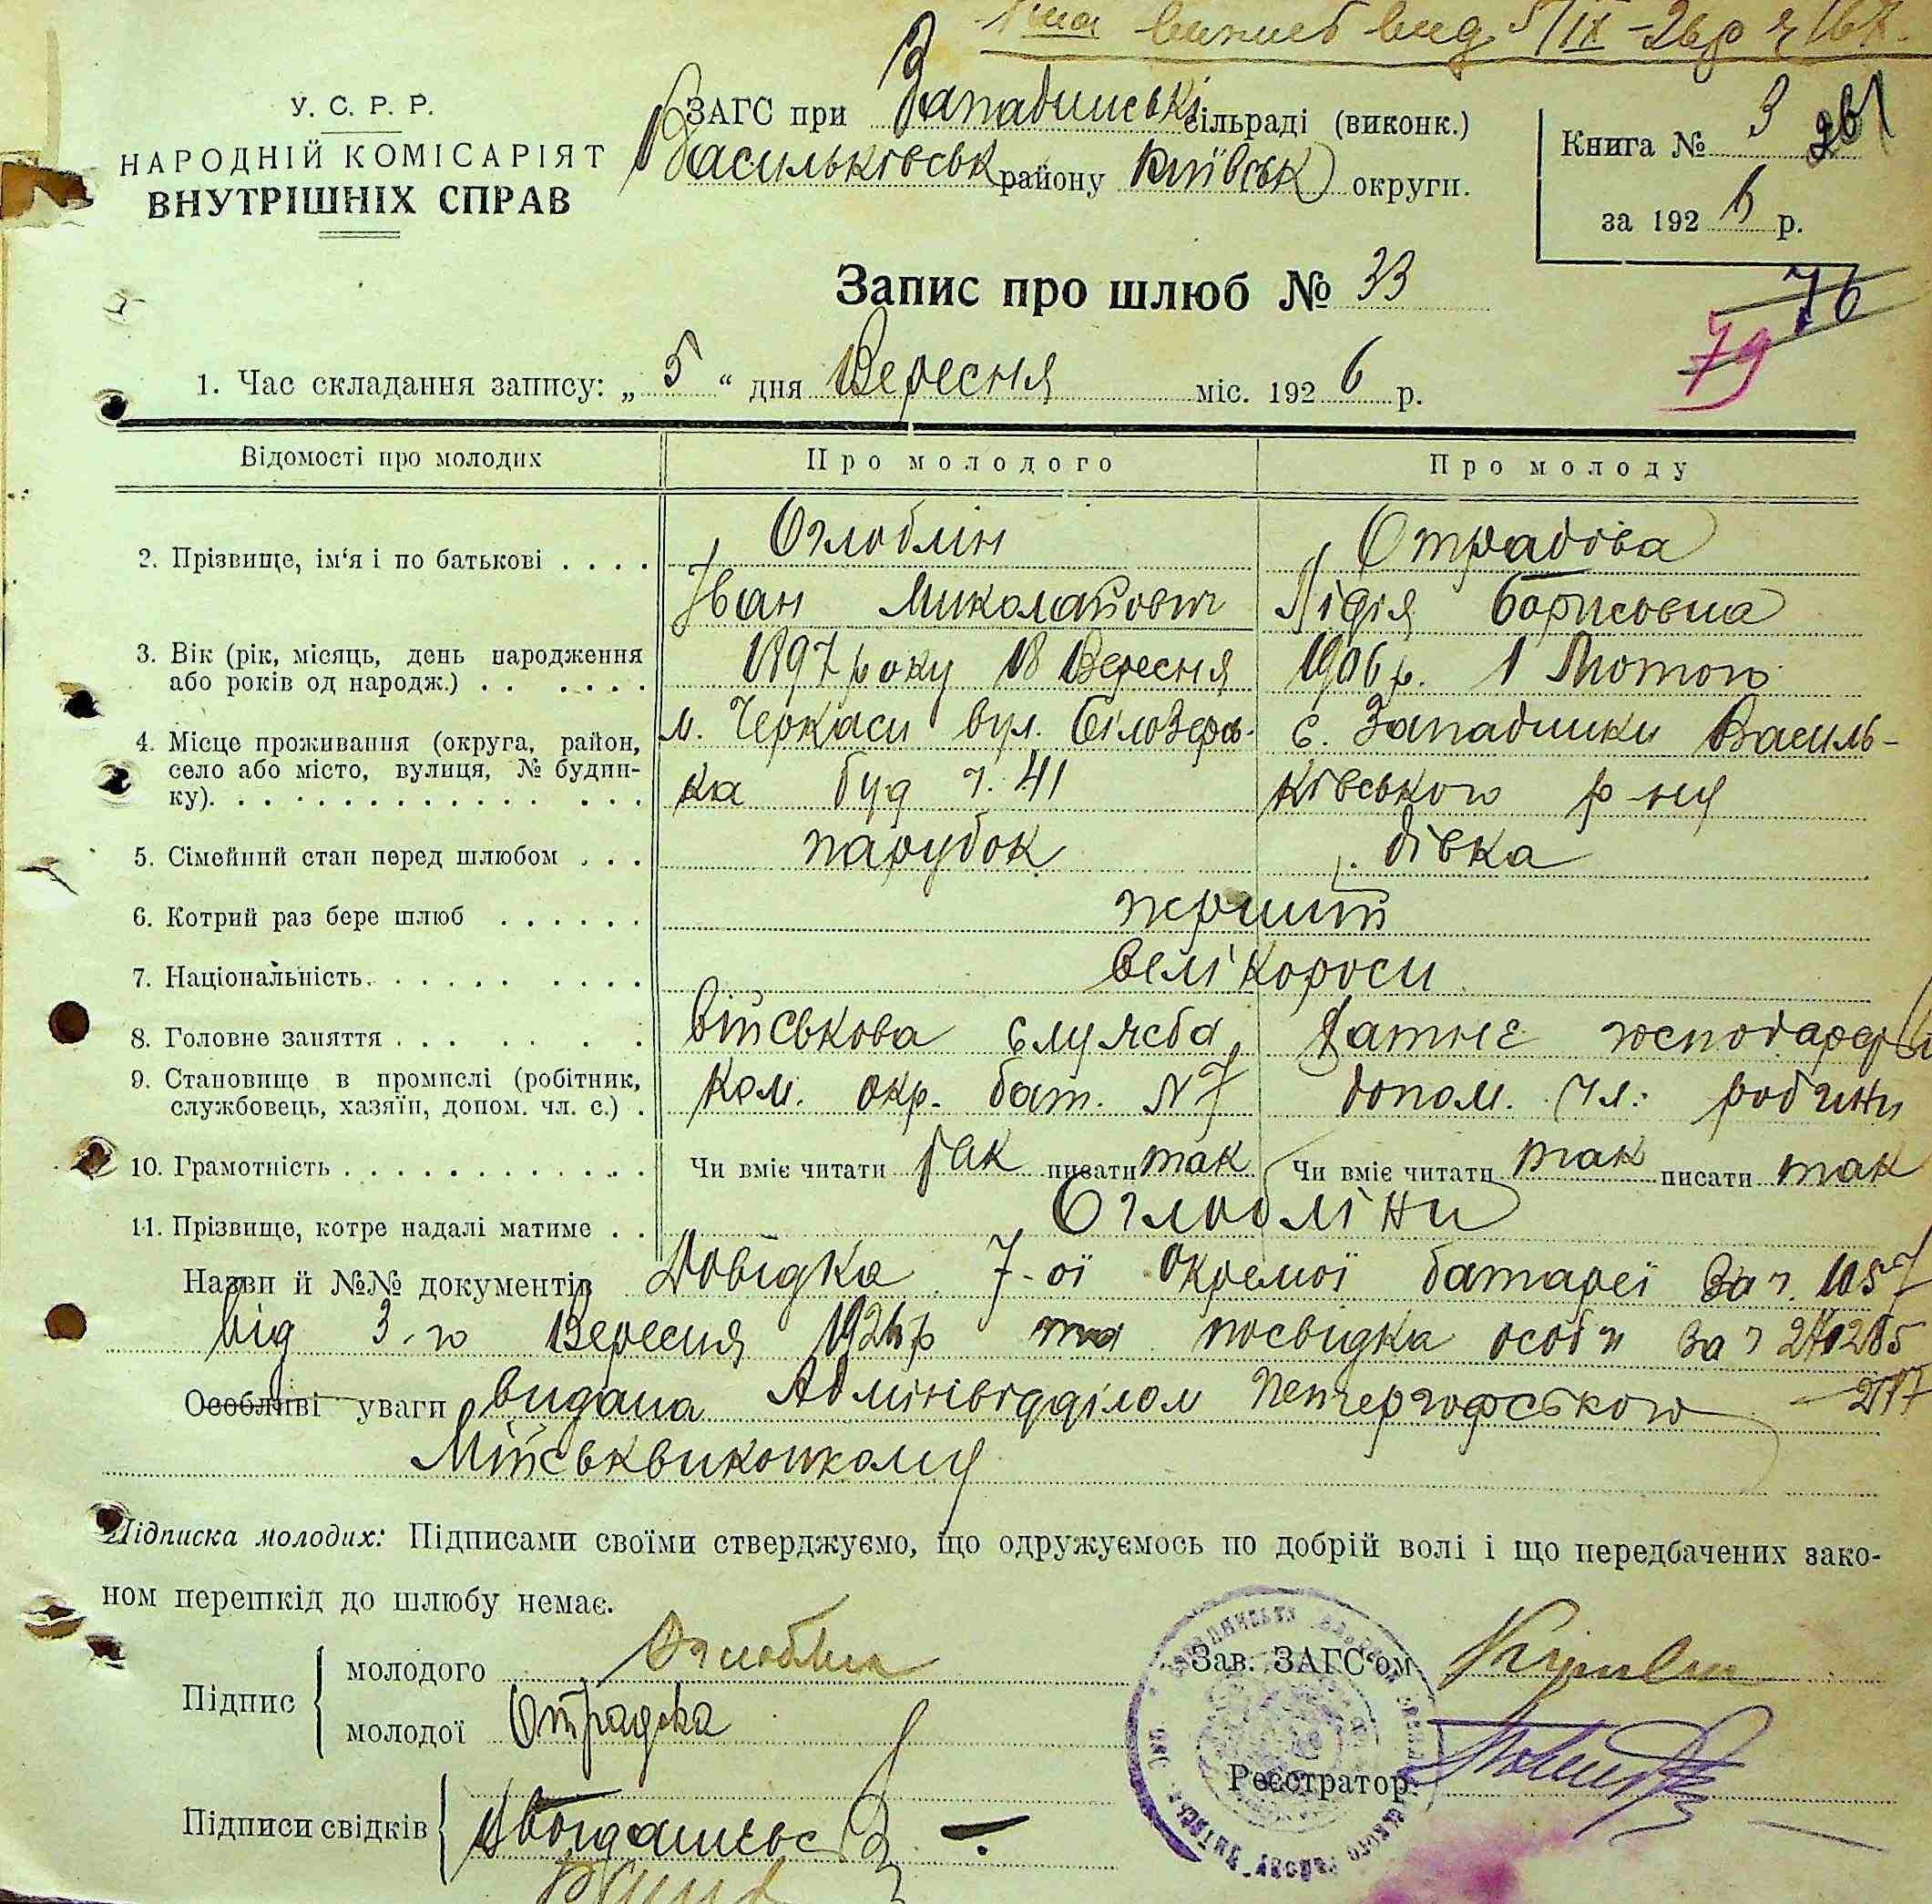 випис вид. 5/IX-26р
У. С. Р. Р.
НАРОДНІЙ КОМІСАРІЯТ
ВНУТРІШНІХ СПРАВ
ЗАГС при Западинські сільраді (виконк.)
Васильківськ району Київськ округи.
Книга № 3
за 1926 р.
Запис про шлюб № 33
76
79
1. Час складання запису: „5“ дня Вересня міс. 1926 р.
Відомості про молодих Про молодого Про молоду
2. Прізвище, ім'я і по батькові . . . . Оглоблін Отрадова
Іван Миколайович Лідія Борисовна
3. Вік (рік, місяць, день народження або років од народж.) . . . . . . 1897 року 18 Вересня 1906 р. 1 Лютого
4. Місце проживання (округа, район, село або місто, вулиця, № будинку). м. Черкаси вул. Білозерсь- с. Западинки Василь-
ка буд ч. 41 ківського р-ну
5. Сімейний стан перед шлюбом . . . парубок дівка
6. Котрий раз бере шлюб . . . . . . перший
7. Національність. . . . . . . . . . велікороси
8. Головне заняття . . . . . . . військова служба Хатнє господар
9. Становище в промислі (робітник, службовець, хазяїн, допом. чл. с.) . Ком. окр. бат. N 7 допом. чл. родини
10. Грамотність . . . . . . . . . . . . . Чи вміє читати так писати так Чи вміє читати так писати так
11. Прізвище, котре надалі матиме . . Оглобліни
Назви й №№ документів Довідка 7-ої Окремої батареї За ч. 1057
від 3-го Вересня 1926 р та посвідка особи за ч
Особливі уваги видана Адмінвідділом Петергофського
Міськвиконкому
Підписка молодих: Підписами своїми стверджуємо, що одружуємось по добрій волі і що передбачених зако-
ном перешкід до шлюбу немає.
Підпис молодого Оглоблин
молодої Отрадова
Зав. ЗАГС'ом
Реєстратор
Підписи свідків